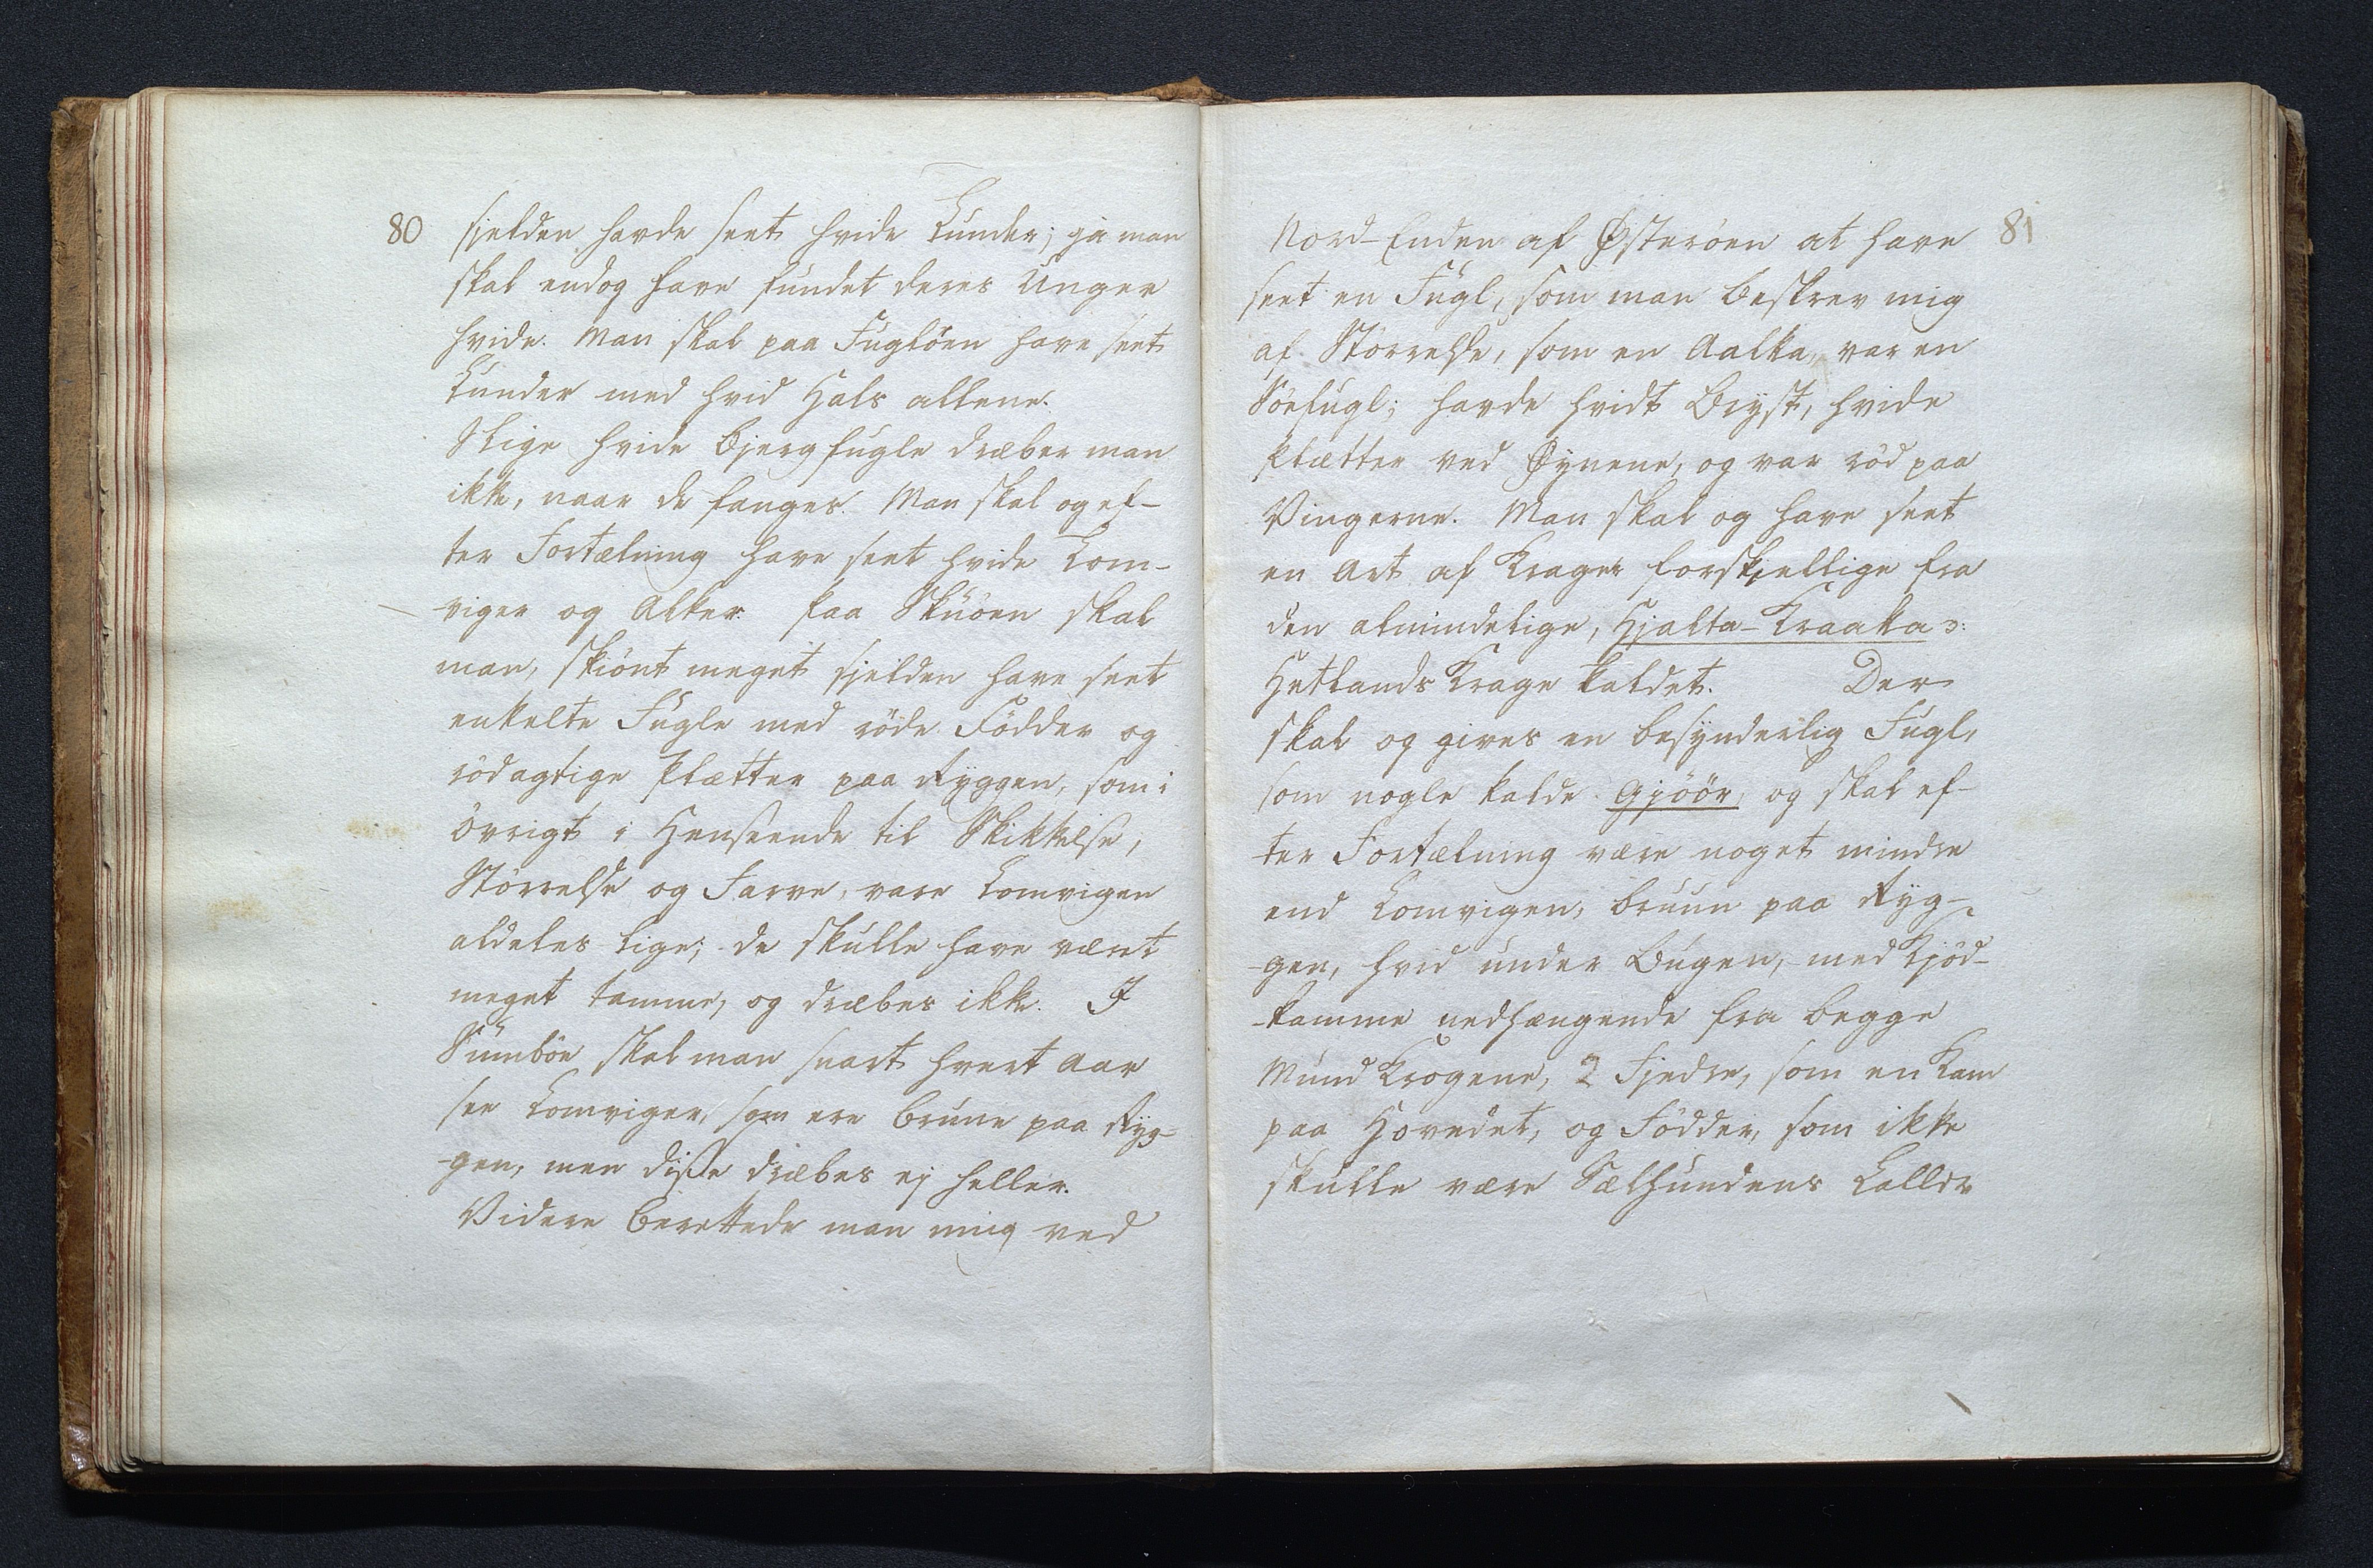 80
sjelden havde seet hvide Lunder; ja man
skal endog have fundet deres Unger
hvide. Man skal paa Fugløen have seet
Lunder med hvid Hals allene.
Slige hvide Bjergfugle dræber man
ikke, naar de fanges. Man skal og ef-
ter Fortælning have seet hvide Lom-
viger og Alker. Paa Skuöen skal
man, skiönt meget sjelden have seet
enkelte Fugle med röde Födder og
rödagtige Plætter paa Ryggen, som i
övrigt i Henseende til Skikkelse,
Störrelse og Farve, vare Lomvigen
aldeles lige; de skulle have været
meget tamme, og dræbes ikke. I
Sumböe skal man snart hvert Aar
see Lomviger, som ere brune paa Ryg-
-gen, men disse dræbes ej heller.
Videre berettede man mig ved
81
Nord-Enden af Österöen at have
seet en Fugl, som man beskrev mig
af Störrelse, som en Aalka, var en
Söefugl; havde hvidt Bryst, hvide
Plætter ved Öynene, og var röd paa
Vingerne. Man skal og have seet
en Art af Krager forskjellige fra
den almindelige, Hjalta-Kraaka ɔ:
Hetlands Krage kaldet. Der
skal og gives en besynderlig Fugl,
som nogle kalde Gjöör, og skal ef-
ter Fortælning være noget mindre
end Lomvigen, bruun paa Ryg-
-gen, hvid under Bugen, med Kjöd-
-kamme nedhængende fra begge
Mund Krogene, 2 Fjedre, som en Kam
paa Hovedet, og Födder, som ikke
skulle være Sælhundens Laller